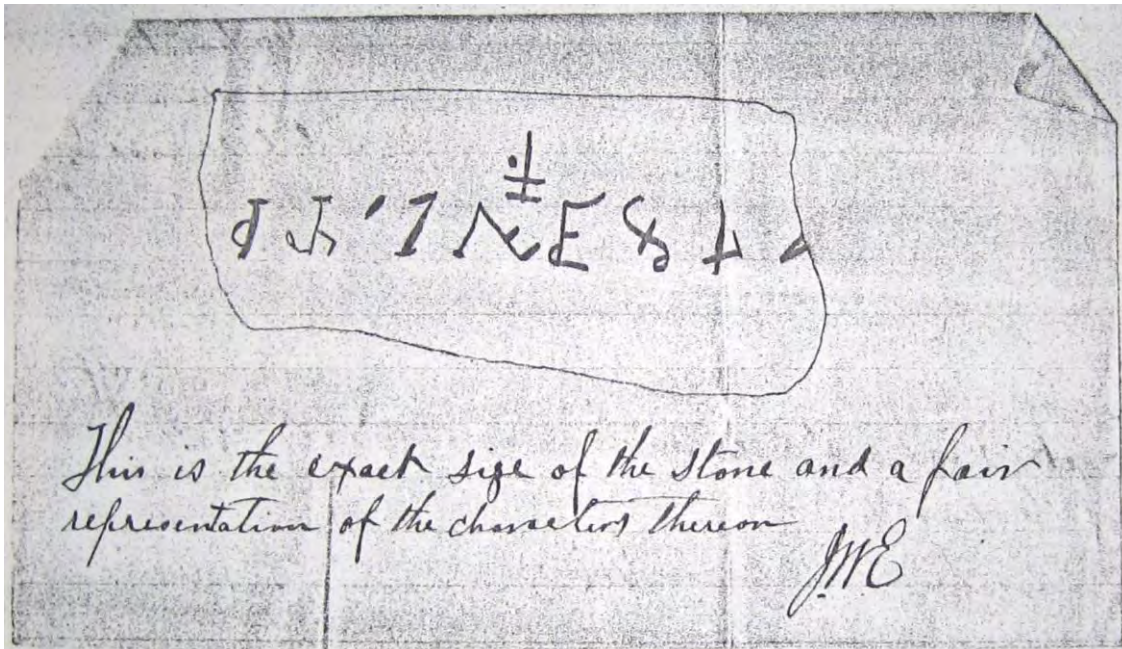 This is the exact size of the stone and a fair
representation of the characters thereon
J.W.E